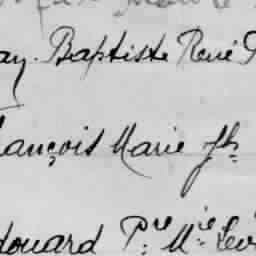 ay. Baptiste René
ançois Marie fh.
douard Pre. Mie. Lev